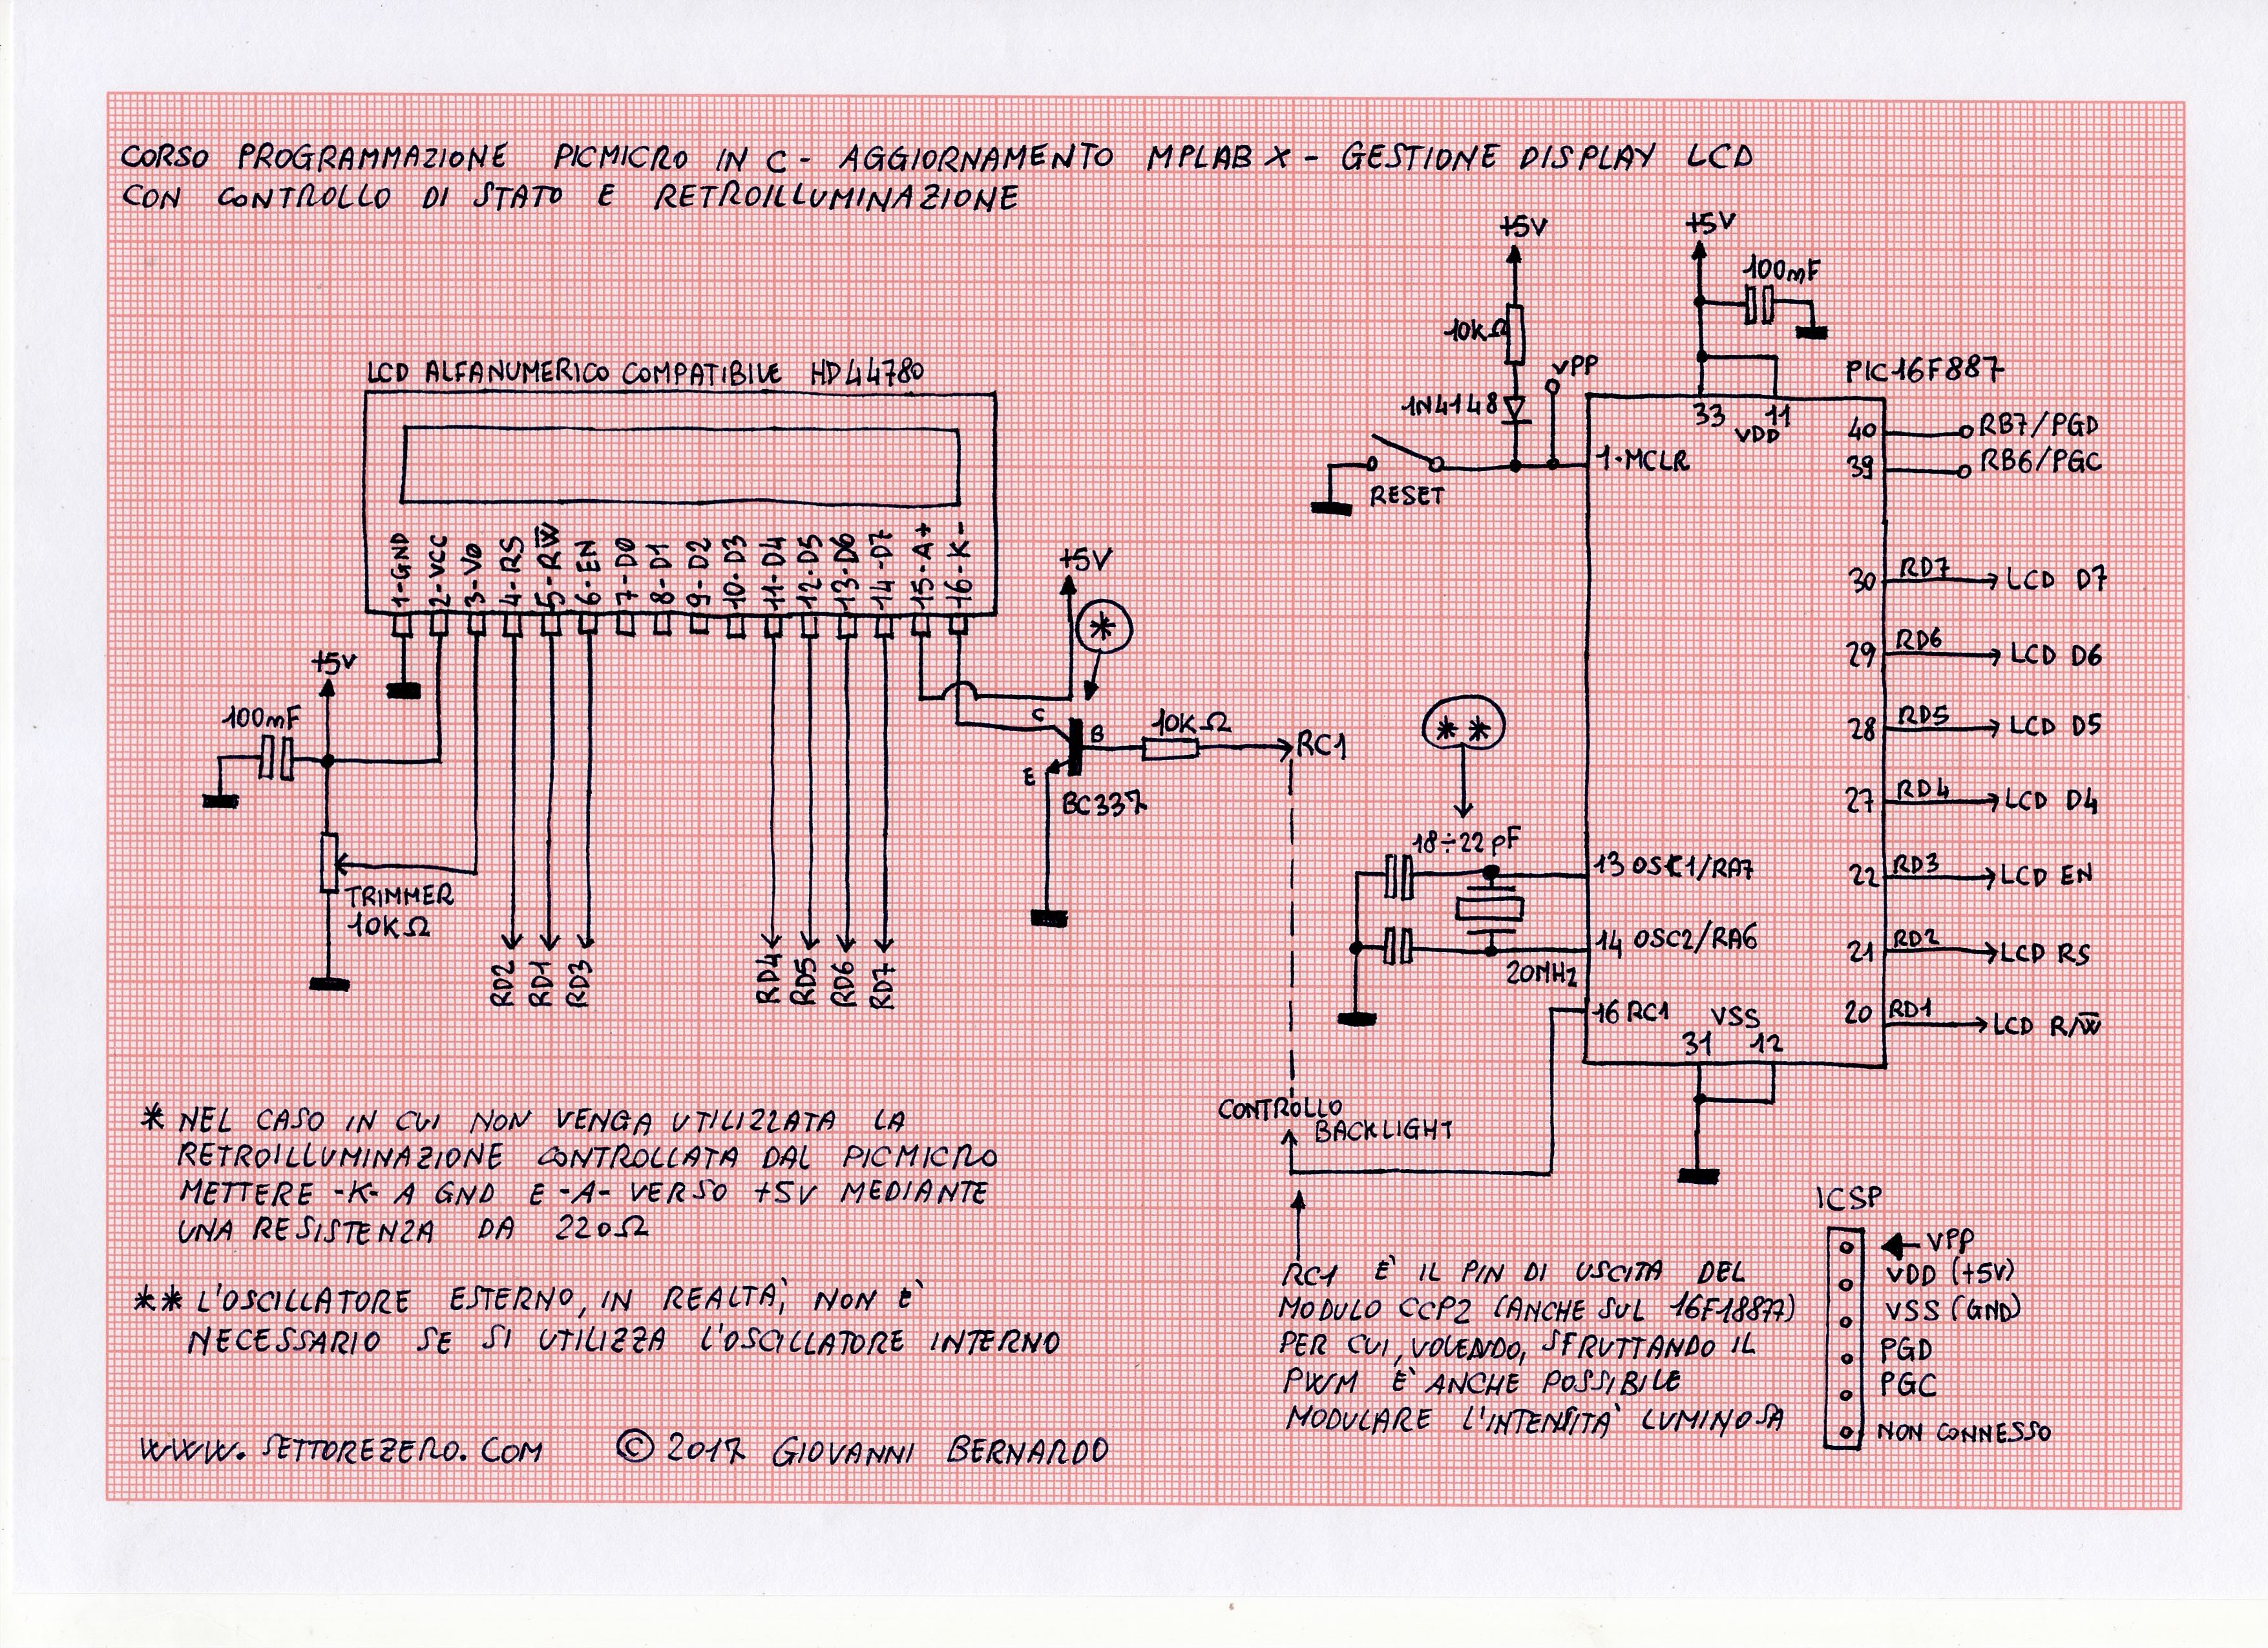 CORSO PROGRAMMAZIONE PICMICRO IN C - AGGIORNAMENTO MPLAB X - GESTIONE DISPLAY LCD
CON CONTROLLO DI STATO E RETROILLUMINAZIONE
LCD ALFANUMERICO COMPATIBILE HD44780
1-GND
2-VCC
3-V0
4-RS
5-RW̅
6-EN
7-D0
8-D1
9-D2
10-D3
11-D4
12-D5
13-D6
14-D7
15-A+
16-K-
+5V
100mF
TRIMMER
10KΩ
RD2
RD1
RD3
RD4
RD5
RD6
RD7
+5V
*
C
B
E
BC337
10KΩ
RC1
CONTROLLO
BACKLIGHT
+5V
10KΩ
1N4148
VPP
RESET
+5V
100mF
PIC16F887
33
11
VDD
1-MCLR
40
RB7/PGD
39
RB6/PGC
30
RD7
LCD D7
29
RD6
LCD D6
28
RD5
LCD D5
27
RD4
LCD D4
22
RD3
LCD EN
21
RD2
LCD RS
20
RD1
LCD R/W̅
**
18÷22 pF
13 OSC1/RA7
14 OSC2/RA6
20MHz
16 RC1
VSS
31
12
* NEL CASO IN CUI NON VENGA UTILIZZATA LA
RETROILLUMINAZIONE CONTROLLATA DAL PICMICRO
METTERE -K- A GND E -A- VERSO +5V MEDIANTE
UNA RESISTENZA DA 220Ω
** L'OSCILLATORE ESTERNO, IN REALTÀ, NON È
NECESSARIO SE SI UTILIZZA L'OSCILLATORE INTERNO
RC1 È IL PIN DI USCITA DEL
MODULO CCP2 (ANCHE SUL 16F18877)
PER CUI, VOLENDO, SFRUTTANDO IL
PWM È ANCHE POSSIBILE
MODULARE L'INTENSITÀ LUMINOSA
ICSP
VPP
VDD (+5V)
VSS (GND)
PGD
PGC
NON CONNESSO
WWW.SETTOREZERO.COM © 2017 GIOVANNI BERNARDO